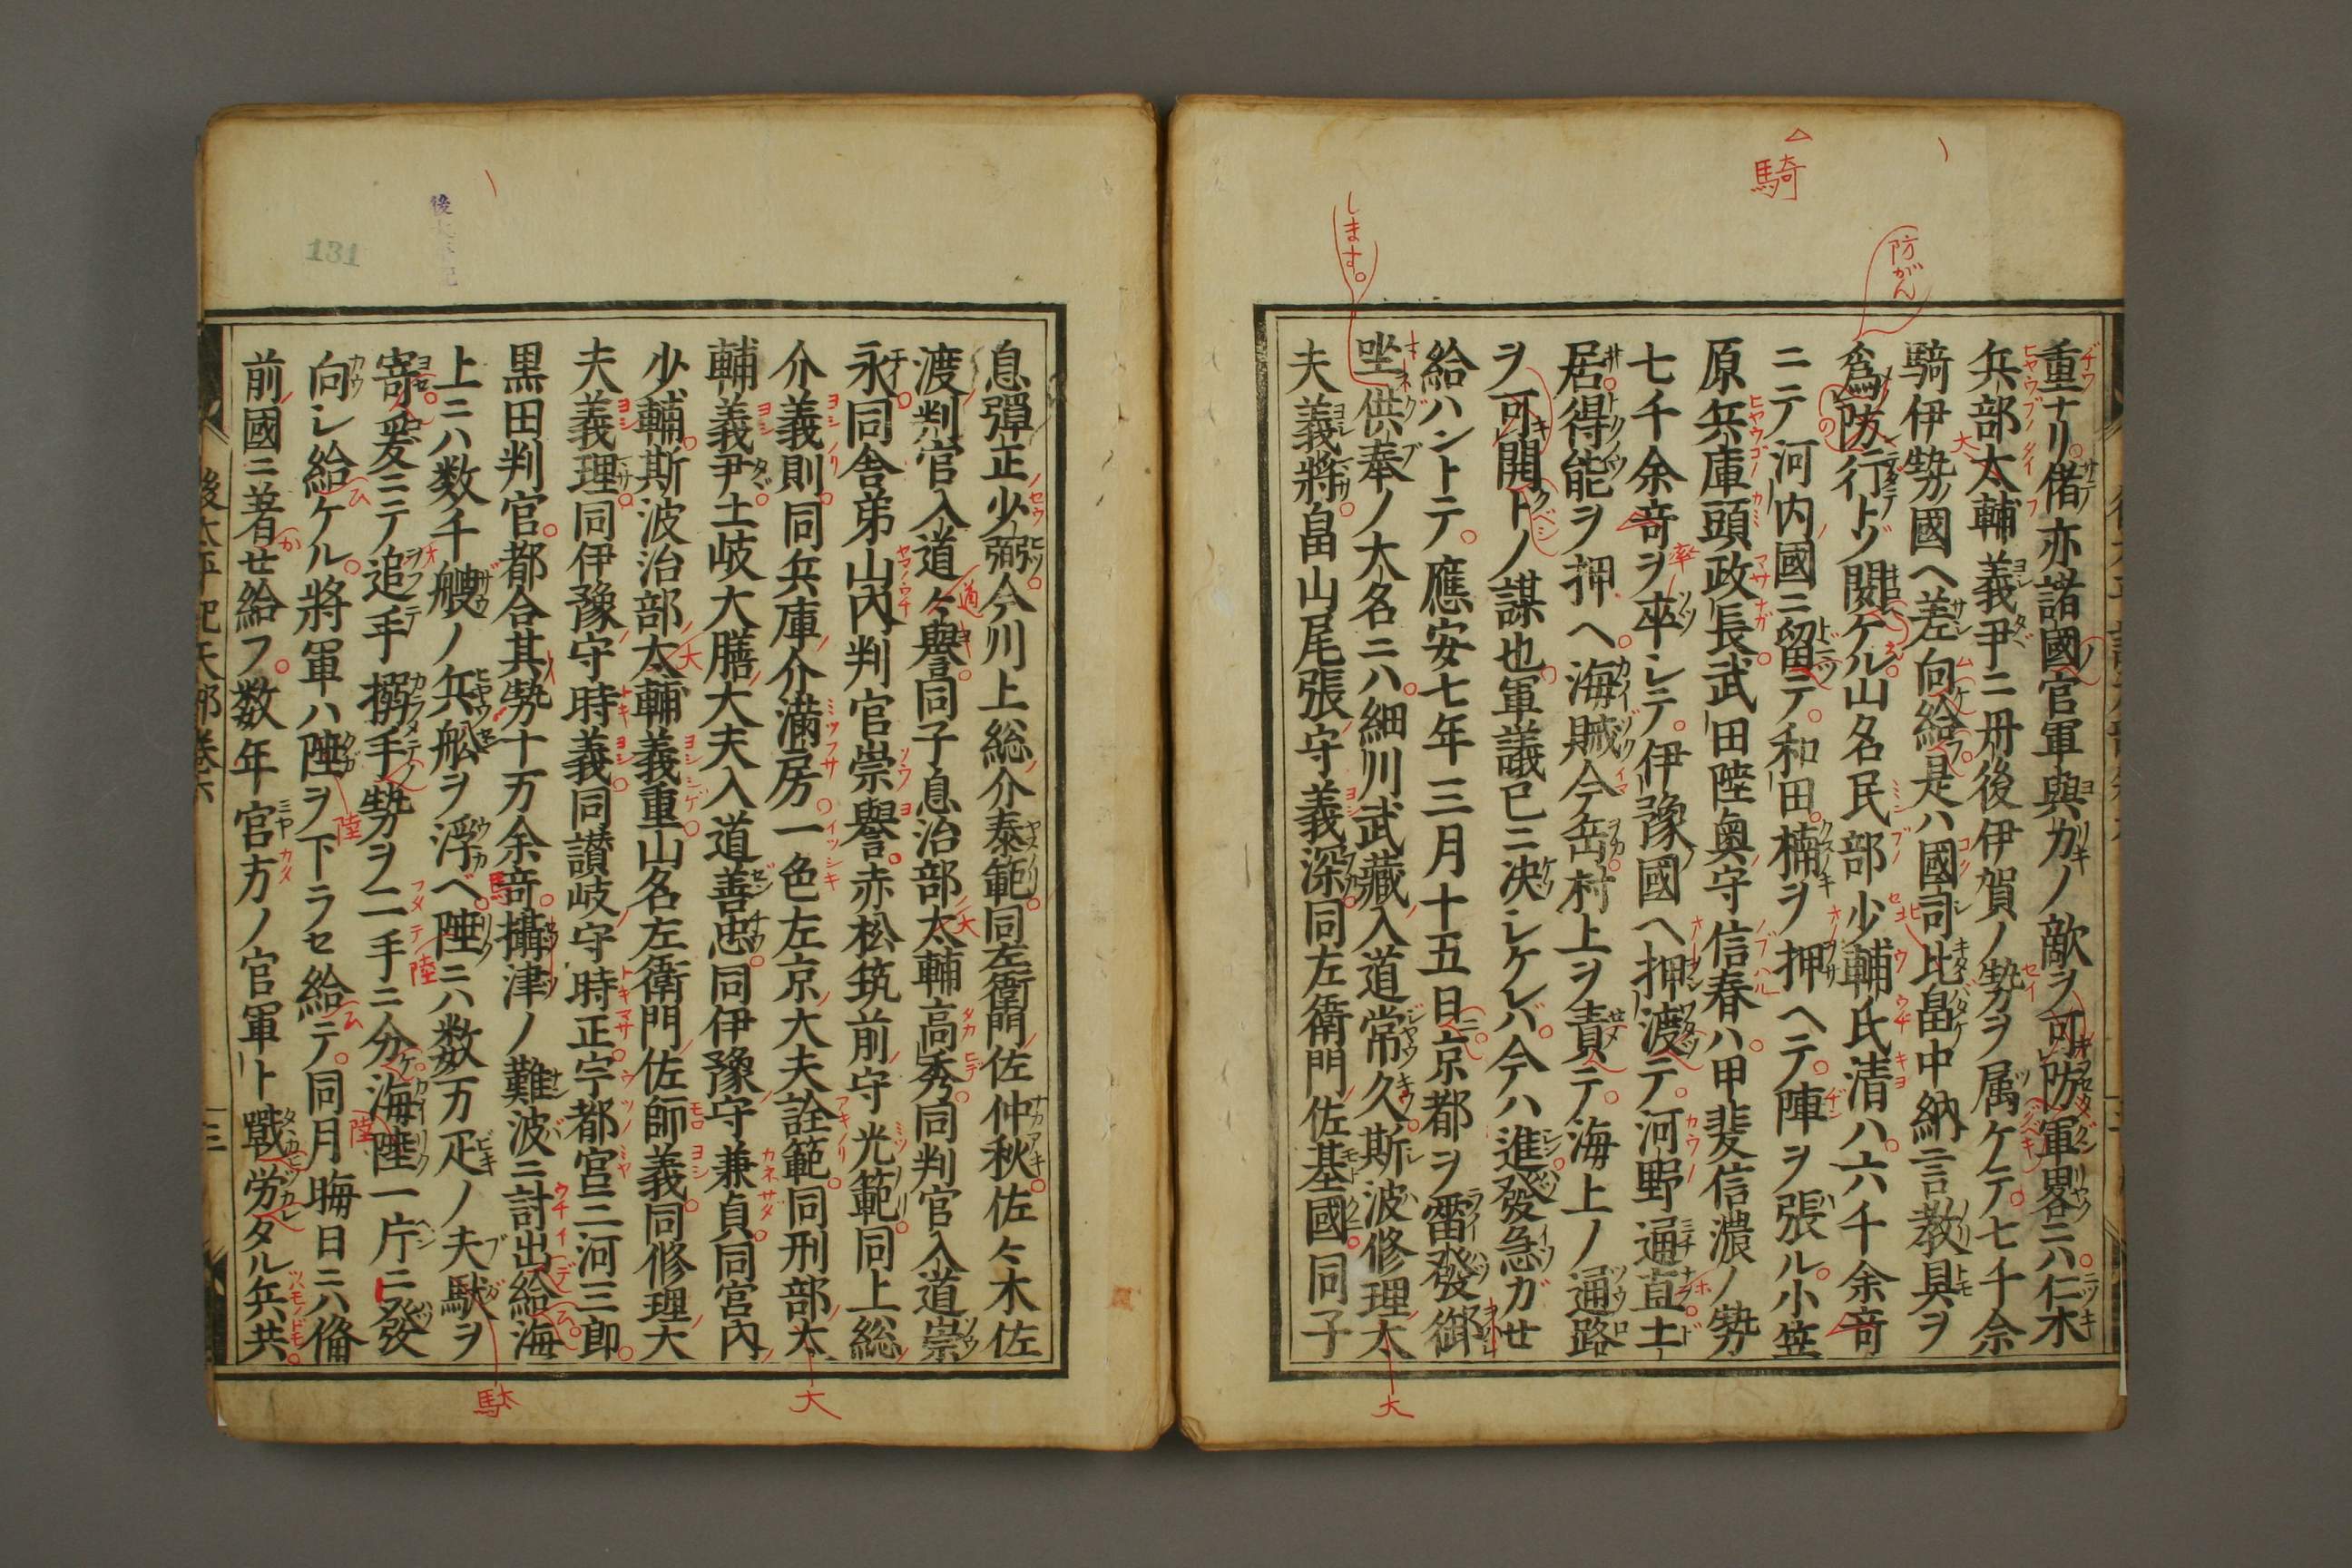 騎
防がん
します。
重ナリ偖亦諸國官軍與力ノ敵ヲ可防軍畧ニハ仁木
兵部太輔義尹ニ丹後伊賀ノ勢ヲ属ケテ七千余
騎伊勢國ヘ差向給是ハ國司北畠中納言教具ヲ
爲防行トゾ聞ケル山名民部少輔氏清ハ六千余竒
ニテ河内國ニ留テ和田楠ヲ押ヘテ陣ヲ張ル小笠
原兵庫頭政長武田陸奥守信春ハ甲斐信濃ノ勢
七千余竒ヲ卒レテ伊豫國ヘ押渡テ河野通直土
居得能ヲ押ヘ海賊今岳村上ヲ責テ海上ノ通路
ヲ可開トノ謀也軍議已ニ决レケレバ今ハ進發急ガせ
給ハントテ應安七年三月十五日京都ヲ雷發御
坐供奉ノ大名ニハ細川武藏入道常久斯波修理太
夫義將畠山尾張守義深同左衛門佐基國同子
大
131
息彈正少弼今川上総介泰範同左衛門佐仲秋佐々木佐
渡判官入道々譽同子息治部太輔高秀同判官入道崇
永同舎弟山内判官崇譽赤松筑前守光範同上総
介義則同兵庫介満房一色左京大夫詮範同刑部太
輔義尹土岐大膳大夫入道善忠同伊豫守兼貞同宮内
少輔斯波治部太輔義重山名左衛門佐師義同修理大
夫義理同伊豫守時義同讃岐守時正宇都宮三河三郎
黒田判官都合其勢十万余竒攝津ノ難波ニ討出給海
上ニハ数千艘ノ兵舩ヲ浮ベ陸ニハ数万疋ノ夫駄ヲ
寄爰ニテ追手搦手勢ヲ二手ニ分海陸一庁ニ發
向レ給ケル將軍ハ陸ヲ下ラセ給テ同月晦日ニハ偹
前國ニ着せ給フ数年宮方ノ官軍ト戰労タル兵共
大
駄
後太平記天部巻六